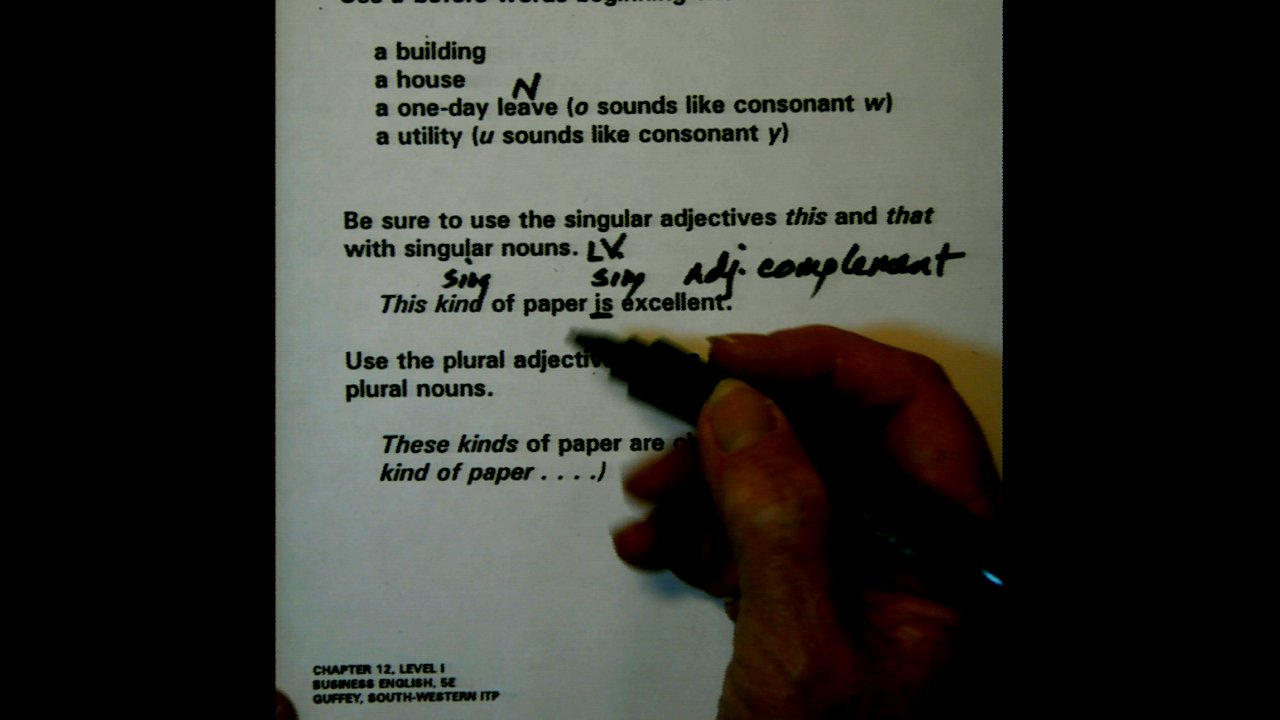 a building
a house
N
a one-day leave (o sounds like consonant w)
a utility (u sounds like consonant y)
Be sure to use the singular adjectives this and that
with singular nouns. LV
sing sing adj. complement
This kind of paper is excellent.
Use the plural
plural nouns.
These kinds of paper are
kind of paper . . . .)
CHAPTER 12, LEVEL I
BUSINESS ENGLISH, 5E
GUFFEY, SOUTH-WESTERN ITP